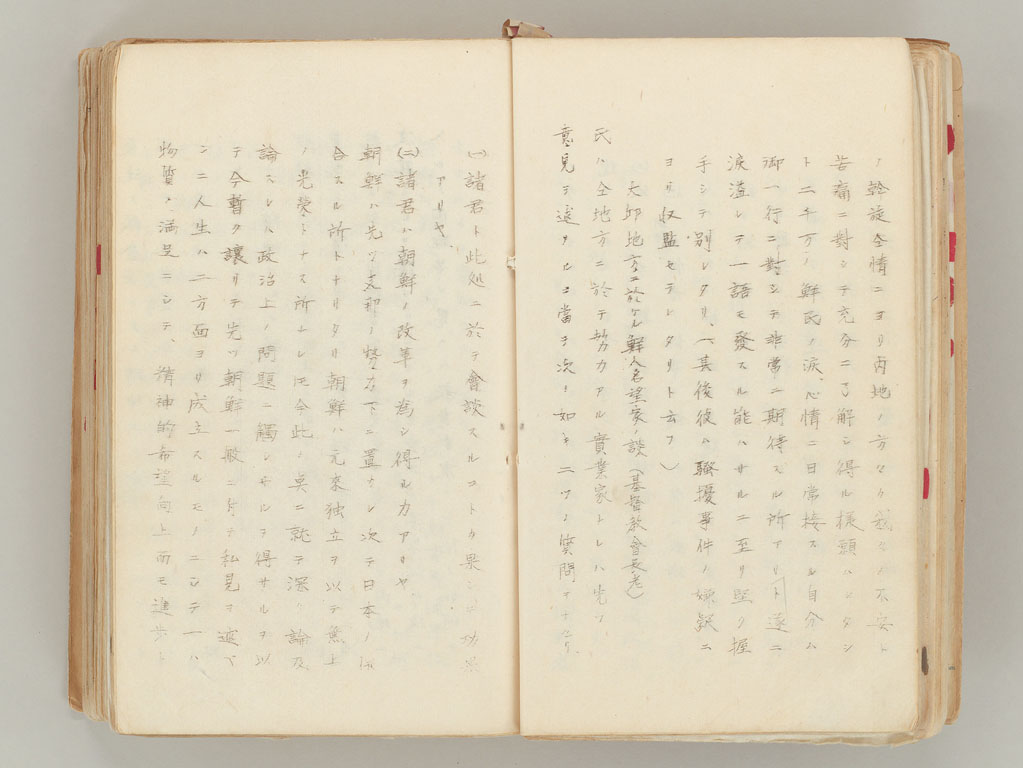 ノ幹旋全情ニヨリ内地ノ方々カ我々ノ不安ト
苦痛ニ對シテ充分ニ了解シ得ル様願ハレタシ
ト二千万ノ鮮民ノ涙、心情ニ日常接スル自分ハ
御一行ニ對シテ非常ニ期待スル所アリト遂ニ
涙溢レテ一語モ發スル能ハサルニ至リ堅ク握
手シテ別レタリ、(其後彼ハ騒擾事件ノ嫌疑ニ
ヨリ収監セラレタリト云フ)
大邱地方ニ於ケル鮮人名望家ノ談(基督教會長老)
氏ハ全地方ニ於テ勢力アル實業家トレハ先ツ
意見ヲ述フルニ當ヲ次ノ如キ二ツノ質問ヲナセリ、
(一)諸君ト此処ニ於テ會談スルコトカ果シテ功果
アリヤ、
(二)諸君ハ朝鮮ノ改革ヲ為シ得ルカアリヤ、
朝鮮ハ先ツ支那ノ勢力下ニ置カレ次テ日本ノ併
合スル所トナリタリ朝鮮ハ元来独立ヲ以テ無上
ノ光榮トナス所ナレ𪜈今此ノ点ニ就テ深ク論及
論スレハ政治上ノ問題ニ觸レサルヲ得サルヲ以
テ今暫ク譲リテ先ツ朝鮮一般ニ付テ私見ヲ述ベ
ンニ人生ハ二方面ヨリ成立スルモノニシテ一ハ
物質ノ満足ニシテ、精神的希望向上而モ進歩ト